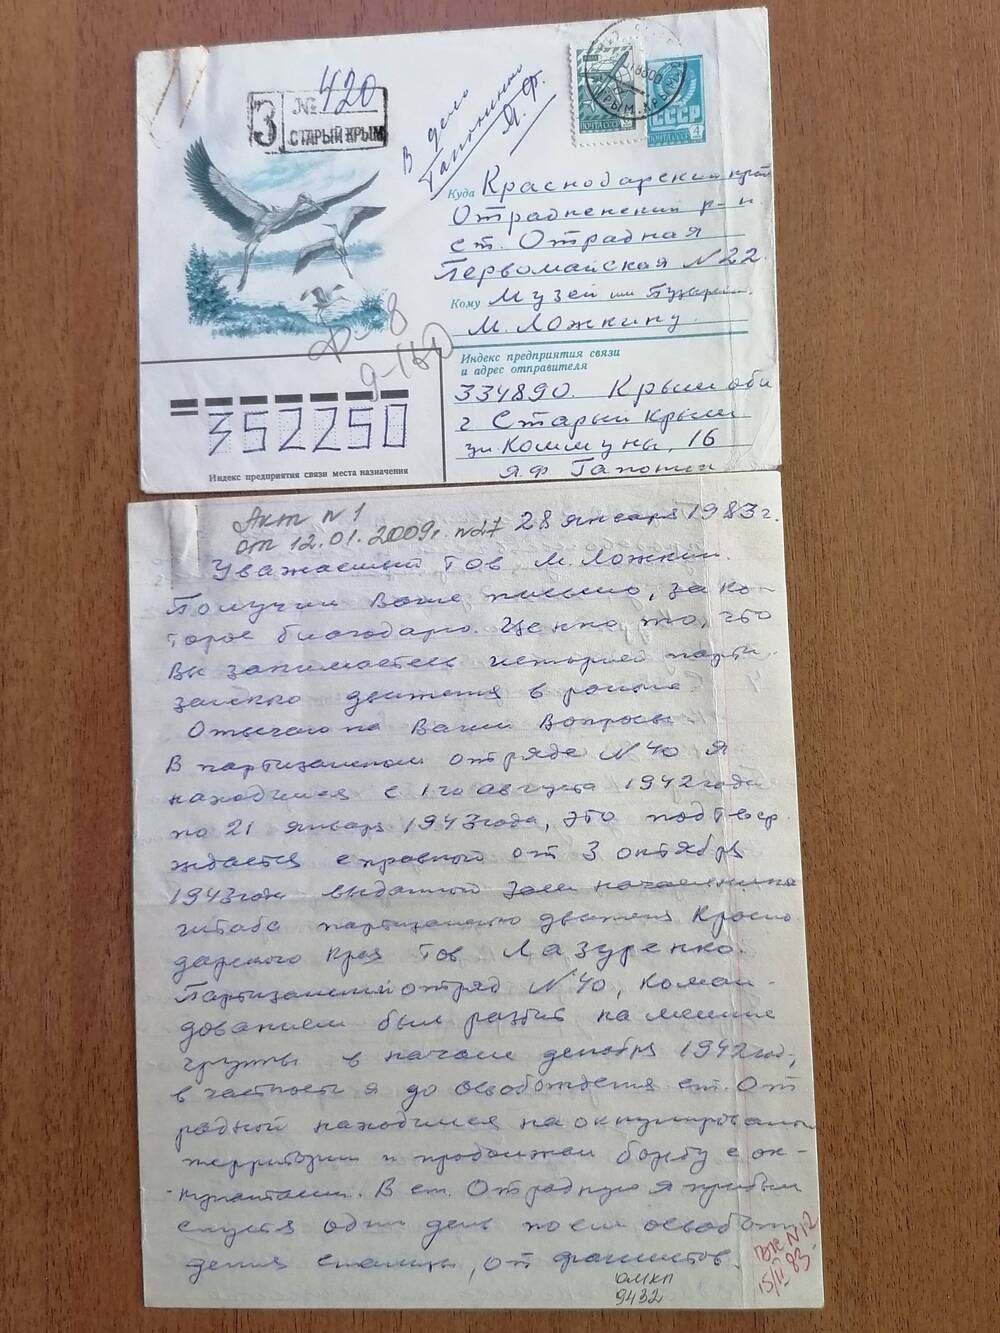 З
№ 420
СТАРЫЙ КРЫМ
В дело
Гапоненко
Я. Ф.
ПОЧТА СССР
СССР
4
Куда Краснодарский край
Отрадненский р-н
ст. Отрадная
Первомайская N 22
Кому Музей им
М. Ложкину
Индекс предприятия связи
и адрес отправителя
334890. Крым обл
г Старый Крым
ул Коммуны, 16
Я.Ф.
352250
Индекс предприятия связи места назначения
Акт N 1
от 12.01.2009г. N 27
28 января 1983 г.
Уважаемый тов. М. Ложкин.
Получил Ваше письмо, за ко-
торое благодарю. Ценно то, что
Вы занимаетесь историей парти-
занского движения в районе
Отвечаю на Ваши вопросы
В партизанском отряде N 40 я
находился с 1го августа 1942 года
по 21 января 1943 года, это подтвер
ждается справкой от 3 октября
1943 года выданной Зам начальника
штаба партизанского движения Красно
дарского края тов Лазуренко.
Партизанский отряд N 40, коман-
дованием был разбит на мелкие
группы в начале декабря 1942 года,
в частности я до освобождения ст. От
радной находился на оккупированной
территории и продолжал борьбу с ок-
купантами. В ст. Отрадную я прибыл
спустя один день после освобож
дения станицы, от фашистов.
N 12
15/II 83.
ОМКП
9432